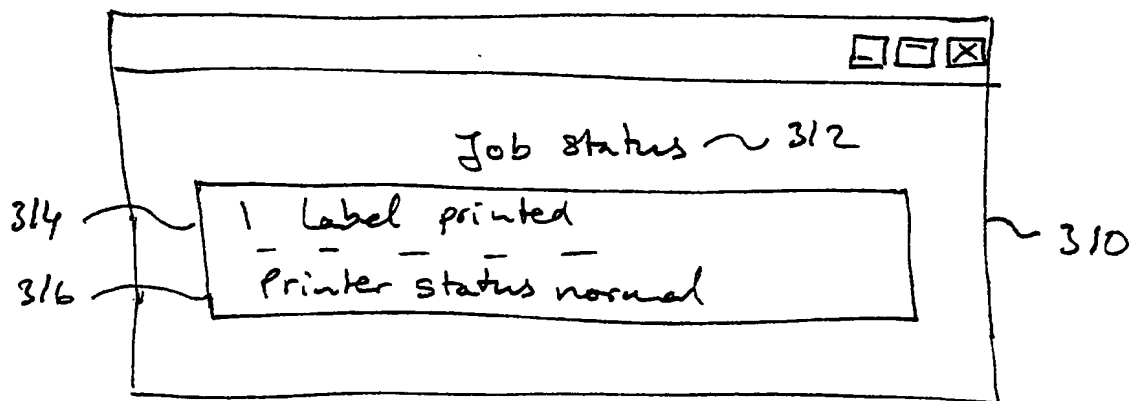 Job status 312
314 1 Label printed
310
316 Printer status normal